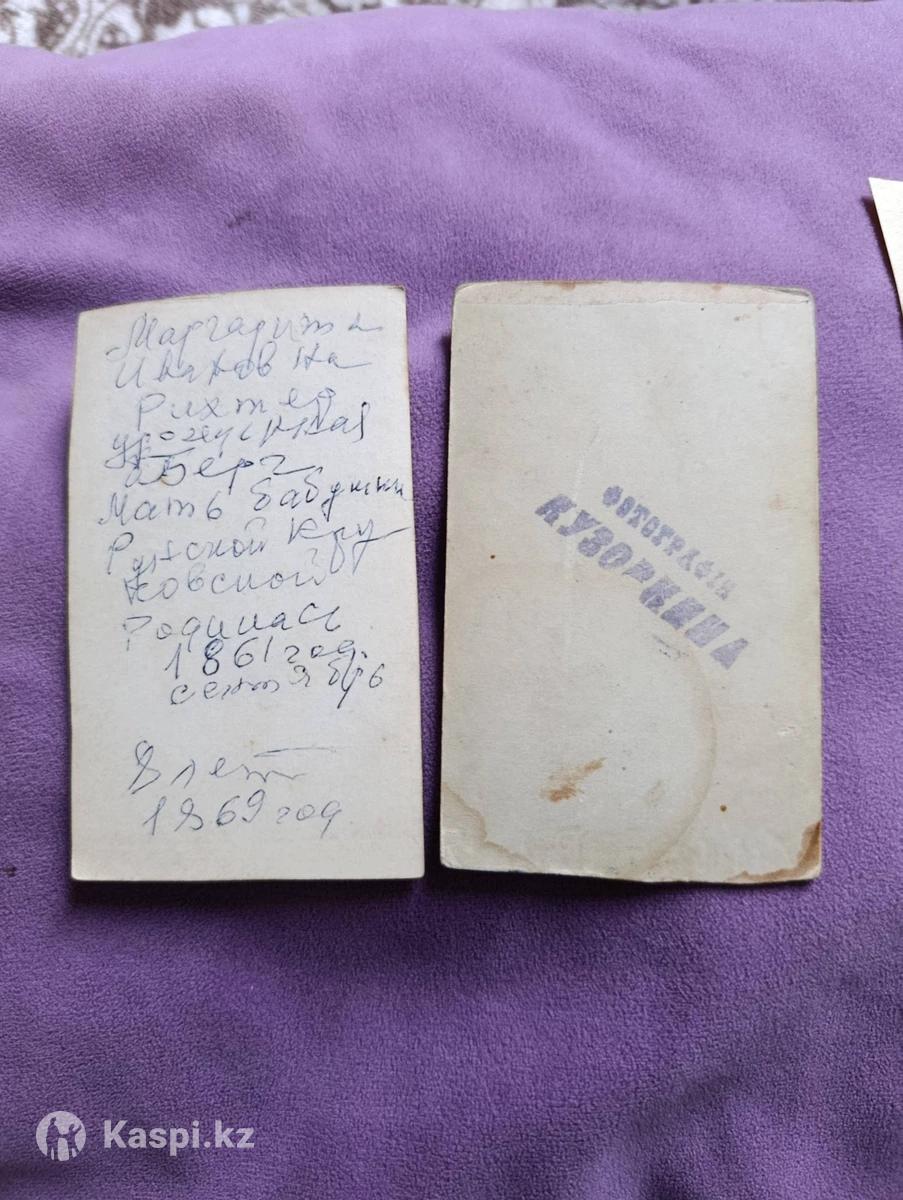 Маргарита
Ивановна
Рихтер
урожеденная
Берг
Мать бабушки
Ружской Кру
ковской
Родилась
1861 год.
сентябрь
8 лет
1869 год.
ФОТОГРАФІЯ
КУЗОВКИНА
Kaspi.kz